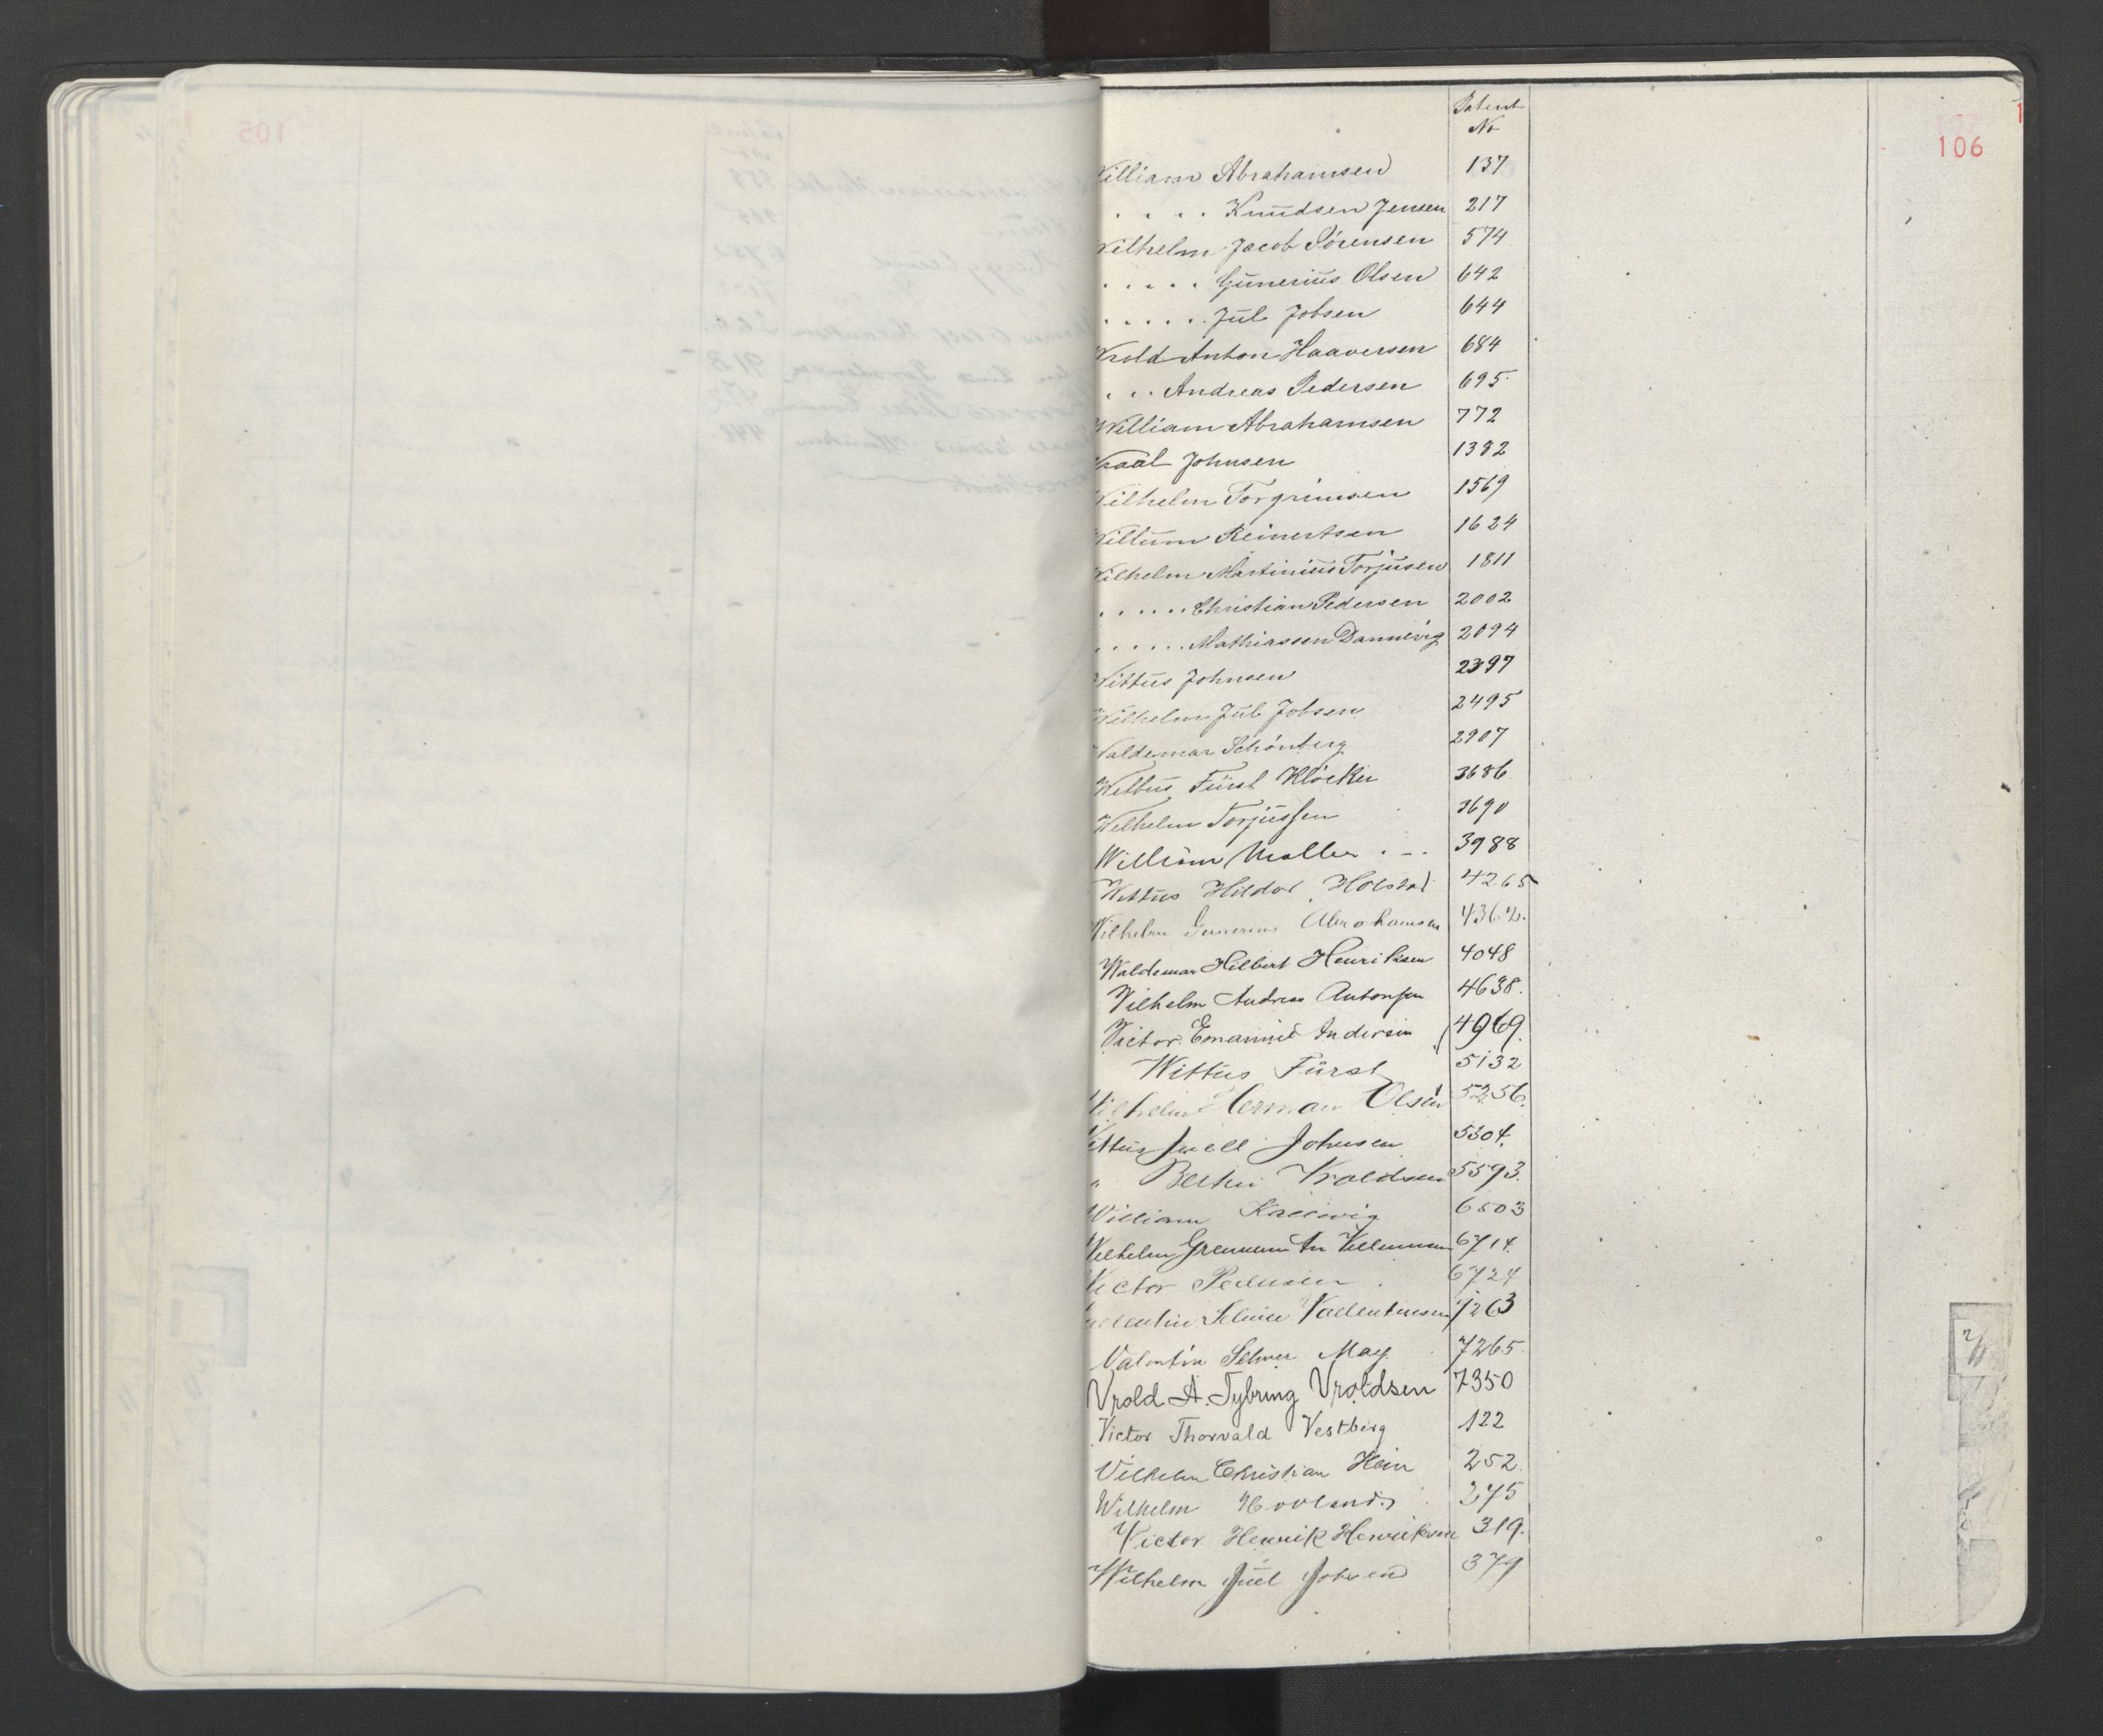 Patent
No
106
William Abrahamsen 137
. . . . Knudsen Jensen 217
Wilhelm Jacob Sørensen 574
. . . . . Gunerius Olsen 642
. . . . . Jul Jobsen 644
Wrold Anton Haaversen 684
. . . Andreas Pedersen 695
William Abrahamsen 772
Johnsen 1382
Wilhelm Torgrimsen 1569
Willum Reinertsen 1624
Wilhelm Martinius Torjusen 1811
. . . . . . Christian Pedersen 2002
. . . . . . Mathiassen Dannevig 2094
Wittus Johnsen 2397
Wilhelm Jul Jobsen 2495
Waldemar Schönberg 2907
Wittus Fürst Klöcker 3686
Wilhelm Torjussen 3690
William Møller . - . 3988
Wittus Hildor Holstad 4265
Wilhelm Gunerius Abrahamsen 4362.
Waldemar Hilbert Henriksen 4048
Vilhelm Andreas Antonsen 4638.
Victor Emanuel Andersen 4969.
Wittus Fürst 5132
Vilhelm Herman Olsen 5256.
Wittus Juell Johnsen 5304.
" Vroldsen 5593.
William Kallevig 6503
Vilhelm 6714.
Victor Pedersen . 6724
Vallentin Selmer Vallentinsen 7263
Valentin Selmer May 7265.
Vrold A. Tybring Vroldsen 7350
Victor Thorvald Vestberg 122
Vilhelm Christian Hein 252.
Wilhelm 275
Victor Henrik Henriksen 319.
Wilhelm Juel Jobsen 379